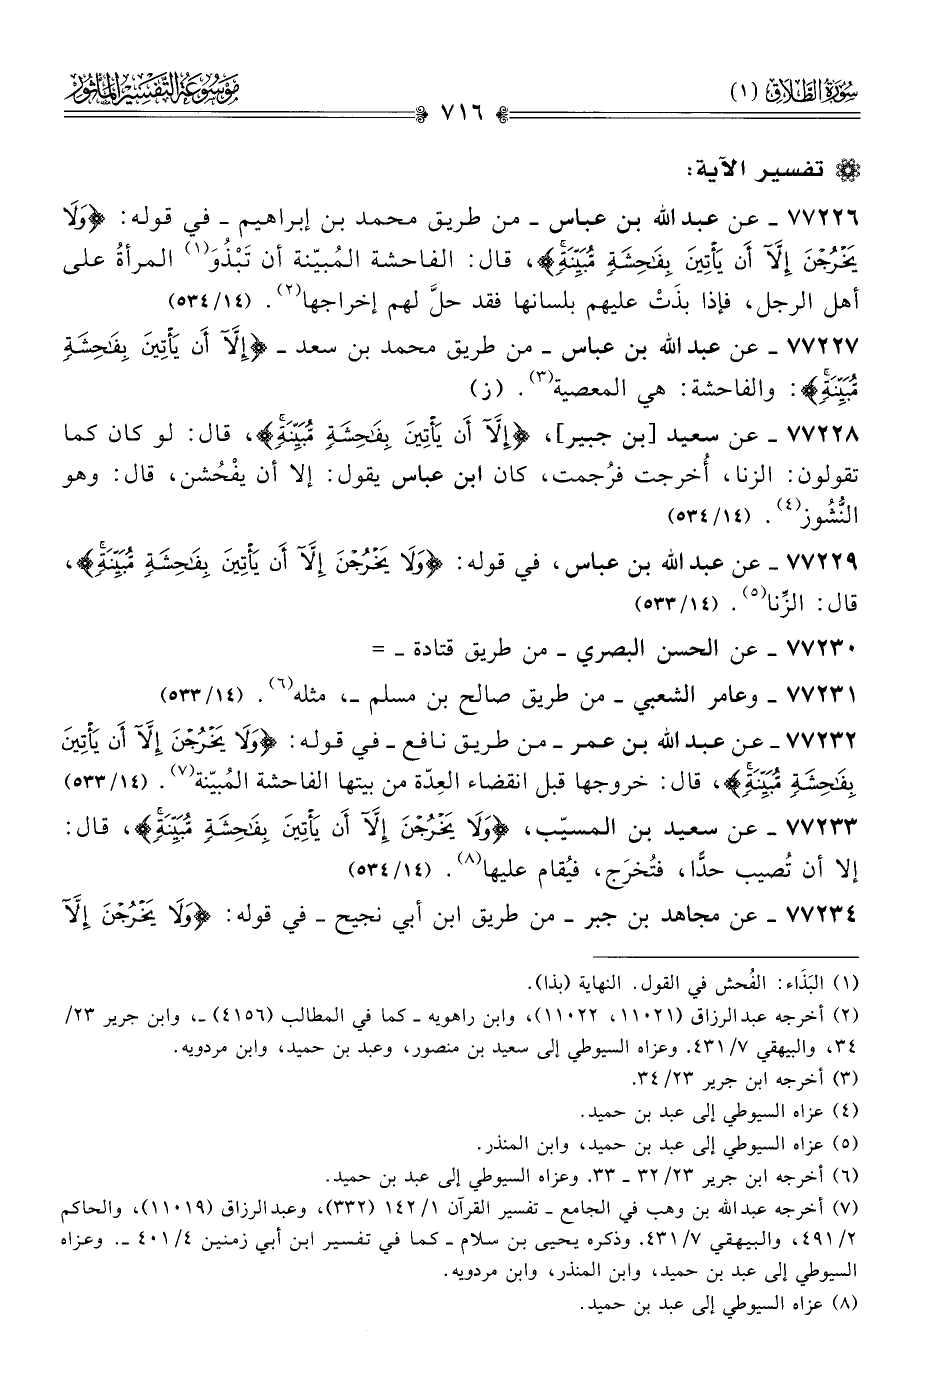 سُورَةُ الطَّلَاقِ (١)
٧١٦
مَوْسُوعَةُ التَّفْسِيرِ المَأْثُورِ
تفسير الآية:
٧٧٢٢٦ ـ عن عبد الله بن عباس ـ من طريق محمد بن إبراهيم ـ في قوله: ﴿وَلَا
يَخْرُجْنَ إِلَّآ أَن يَأْتِينَ بِفَٰحِشَةٖ مُّبَيِّنَةٖۚ﴾، قال: الفاحشة المُبيّنة أن تَبْذُوَ(١) المرأةُ على
أهل الرجل، فإذا بذَتْ عليهم بلسانها فقد حلَّ لهم إخراجها(٢). (١٤/ ٥٣٤)
٧٧٢٢٧ ـ عن عبد الله بن عباس ـ من طريق محمد بن سعد ـ ﴿إِلَّآ أَن يَأْتِينَ بِفَٰحِشَةٖ
مُّبَيِّنَةٖۚ﴾: والفاحشة: هي المعصية(٣). (ز)
٧٧٢٢٨ ـ عن سعيد [بن جبير]، ﴿إِلَّآ أَن يَأْتِينَ بِفَٰحِشَةٖ مُّبَيِّنَةٖۚ﴾، قال: لو كان كما
تقولون: الزنا، أُخرجت فرُجمت، كان ابن عباس يقول: إلا أن يفْحُشن، قال: وهو
النُّشُوز(٤). (١٤/ ٥٣٤)
٧٧٢٢٩ ـ عن عبد الله بن عباس، في قوله: ﴿وَلَا يَخْرُجْنَ إِلَّآ أَن يَأْتِينَ بِفَٰحِشَةٖ مُّبَيِّنَةٖۚ﴾،
قال: الزِّنا(٥). (١٤/ ٥٣٣)
٧٧٢٣٠ ـ عن الحسن البصري ـ من طريق قتادة ـ =
٧٧٢٣١ ـ وعامر الشعبي ـ من طريق صالح بن مسلم ـ، مثله(٦). (١٤/ ٥٣٣)
٧٧٢٣٢ ـ عن عبد الله بن عمر ـ من طريق نافع ـ في قوله: ﴿وَلَا يَخْرُجْنَ إِلَّآ أَن يَأْتِينَ
بِفَٰحِشَةٖ مُّبَيِّنَةٖۚ﴾، قال: خروجها قبل انقضاء العِدّة من بيتها الفاحشة المُبيّنة(٧). (١٤/ ٥٣٣)
٧٧٢٣٣ ـ عن سعيد بن المسيّب، ﴿وَلَا يَخْرُجْنَ إِلَّآ أَن يَأْتِينَ بِفَٰحِشَةٖ مُّبَيِّنَةٖۚ﴾، قال:
إلا أن تُصيب حدًّا، فتُخرَج، فيُقام عليها(٨). (١٤/ ٥٣٤)
٧٧٢٣٤ ـ عن مجاهد بن جبر ـ من طريق ابن أبي نجيح ـ في قوله: ﴿وَلَا يَخْرُجْنَ إِلَّآ
(١) البَذَاء: الفُحش في القول. النهاية (بذا).
(٢) أخرجه عبد الرزاق (١١٠٢١، ١١٠٢٢)، وابن راهويه ـ كما في المطالب (٤١٥٦) ـ، وابن جرير ٢٣/
٣٤، والبيهقي ٧/ ٤٣١. وعزاه السيوطي إلى سعيد بن منصور، وعبد بن حميد، وابن مردويه.
(٣) أخرجه ابن جرير ٢٣/ ٣٤.
(٤) عزاه السيوطي إلى عبد بن حميد.
(٥) عزاه السيوطي إلى عبد بن حميد، وابن المنذر.
(٦) أخرجه ابن جرير ٢٣/ ٣٢ ـ ٣٣. وعزاه السيوطي إلى عبد بن حميد.
(٧) أخرجه عبد الله بن وهب في الجامع ـ تفسير القرآن ١/ ١٤٢ (٣٣٢)، وعبد الرزاق (١١٠١٩)، والحاكم
٢/ ٤٩١، والبيهقي ٧/ ٤٣١. وذكره يحيى بن سلام ـ كما في تفسير ابن أبي زمنين ٤/ ٤٠١ ـ. وعزاه
السيوطي إلى عبد بن حميد، وابن المنذر، وابن مردويه.
(٨) عزاه السيوطي إلى عبد بن حميد.